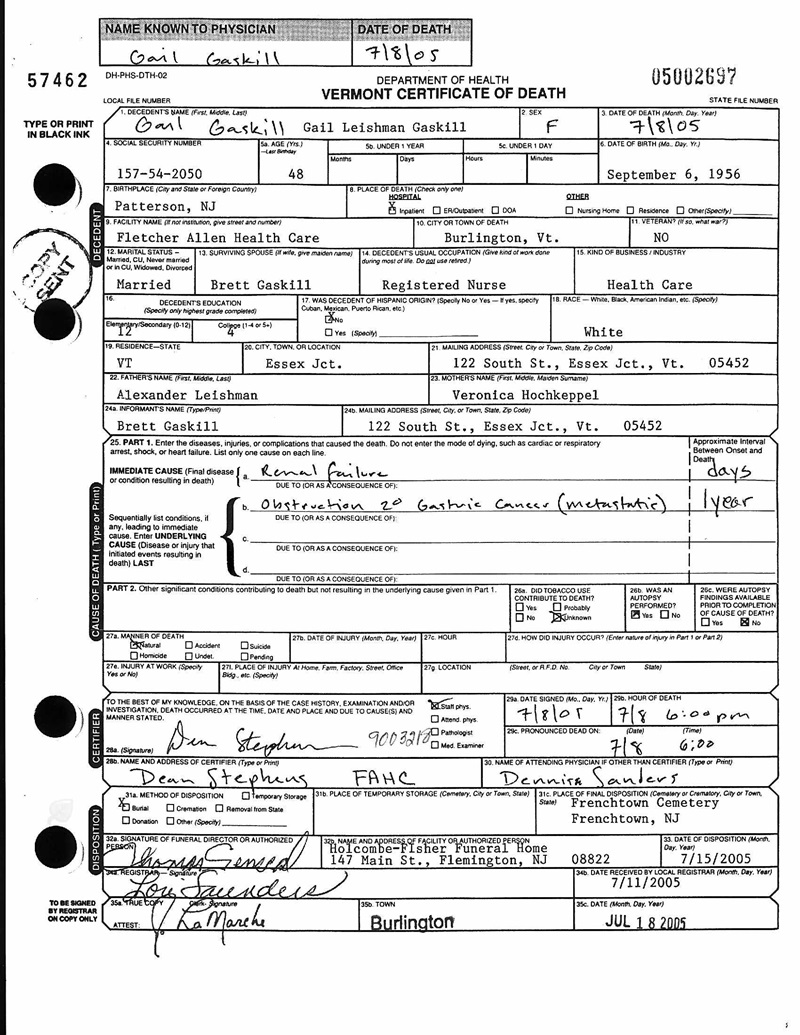 NAME KNOWN TO PHYSICIAN DATE OF DEATH
Gail Gaskill 7/8/05
57462 DH-PHS-DTH-02 DEPARTMENT OF HEALTH 05002697
VERMONT CERTIFICATE OF DEATH
LOCAL FILE NUMBER STATE FILE NUMBER
TYPE OR PRINT IN BLACK INK
1. DECEDENT'S NAME (First, Middle, Last) 2. SEX 3. DATE OF DEATH (Month, Day, Year)
Gail Gaskill Gail Leishman Gaskill F 7/8/05
4. SOCIAL SECURITY NUMBER 5a. AGE (Yrs.) —Last Birthday 5b. UNDER 1 YEAR 5c. UNDER 1 DAY 6. DATE OF BIRTH (Mo., Day, Yr.)
Months Days Hours Minutes
157-54-2050 48 September 6, 1956
7. BIRTHPLACE (City and State or Foreign Country) 8. PLACE OF DEATH (Check only one)
HOSPITAL OTHER
Patterson, NJ X Inpatient ER/Outpatient DOA Nursing Home Residence Other(Specify)
9. FACILITY NAME (If not institution, give street and number) 10. CITY OR TOWN OF DEATH 11. VETERAN? (If so, what war?)
Fletcher Allen Health Care Burlington, Vt. NO
DECEDENT
COPY SENT
12. MARITAL STATUS – Married, CU, Never married or in CU, Widowed, Divorced 13. SURVIVING SPOUSE (If wife, give maiden name) 14. DECEDENT'S USUAL OCCUPATION (Give kind of work done during most of life. Do not use retired.) 15. KIND OF BUSINESS / INDUSTRY
Married Brett Gaskill Registered Nurse Health Care
16. DECEDENT'S EDUCATION (Specify only highest grade completed) 17. WAS DECEDENT OF HISPANIC ORIGIN? (Specify No or Yes — If yes, specify Cuban, Mexican, Puerto Rican, etc.) 18. RACE — White, Black, American Indian, etc. (Specify)
Elementary/Secondary (0-12) College (1-4 or 5+) X No
12 4 Yes (Specify) White
19. RESIDENCE—STATE 20. CITY, TOWN, OR LOCATION 21. MAILING ADDRESS (Street, City or Town, State, Zip Code)
VT Essex Jct. 122 South St., Essex Jct., Vt. 05452
22. FATHER'S NAME (First, Middle, Last) 23. MOTHER'S NAME (First, Middle, Maiden Surname)
Alexander Leishman Veronica Hochkeppel
24a. INFORMANT'S NAME (Type/Print) 24b. MAILING ADDRESS (Street, City, or Town, State, Zip Code)
Brett Gaskill 122 South St., Essex Jct., Vt. 05452
25. PART 1. Enter the diseases, injuries, or complications that caused the death. Do not enter the mode of dying, such as cardiac or respiratory
arrest, shock, or heart failure. List only one cause on each line.
Approximate Interval Between Onset and Death
IMMEDIATE CAUSE (Final disease or condition resulting in death) a. Renal failure days
DUE TO (OR AS A CONSEQUENCE OF):
b. Obstruction 2° Gastric Cancer (metastatic) 1 year
Sequentially list conditions, if any, leading to immediate cause. Enter UNDERLYING CAUSE (Disease or injury that initiated events resulting in death) LAST
DUE TO (OR AS A CONSEQUENCE OF):
c.
DUE TO (OR AS A CONSEQUENCE OF):
d.
DUE TO (OR AS A CONSEQUENCE OF):
CAUSE OF DEATH (Type or Print)
PART 2. Other significant conditions contributing to death but not resulting in the underlying cause given in Part 1.
26a. DID TOBACCO USE CONTRIBUTE TO DEATH? Yes Probably No X Unknown
26b. WAS AN AUTOPSY PERFORMED? X Yes No
26c. WERE AUTOPSY FINDINGS AVAILABLE PRIOR TO COMPLETION OF CAUSE OF DEATH? Yes X No
27a. MANNER OF DEATH 27b. DATE OF INJURY (Month, Day, Year) 27c. HOUR 27d. HOW DID INJURY OCCUR? (Enter nature of injury in Part 1 or Part 2)
X Natural Accident Suicide
Homicide Undet. Pending
27e. INJURY AT WORK (Specify Yes or No) 27f. PLACE OF INJURY At Home, Farm, Factory, Street, Office Bldg., etc. (Specify) 27g. LOCATION (Street, or R.F.D. No. City or Town State)
TO THE BEST OF MY KNOWLEDGE, ON THE BASIS OF THE CASE HISTORY, EXAMINATION AND/OR
INVESTIGATION, DEATH OCCURRED AT THE TIME, DATE AND PLACE AND DUE TO CAUSE(S) AND
MANNER STATED.
X Staff phys.
Attend. phys.
Pathologist
Med. Examiner
29a. DATE SIGNED (Mo., Day, Yr.) 29b. HOUR OF DEATH
7/8/05 7/8 6:00 pm
29c. PRONOUNCED DEAD ON: (Date) (Time)
7/8 6:00
28a. (Signature) Dean Stephens
CERTIFIER
28b. NAME AND ADDRESS OF CERTIFIER (Type or Print) 30. NAME OF ATTENDING PHYSICIAN IF OTHER THAN CERTIFIER (Type or Print)
Dean Stephens FAHC Sanders
31a. METHOD OF DISPOSITION Temporary Storage
X Burial Cremation Removal from State
Donation Other (Specify)
31b. PLACE OF TEMPORARY STORAGE (Cemetery, City or Town, State)
31c. PLACE OF FINAL DISPOSITION (Cemetery or Crematory, City or Town, State)
Frenchtown Cemetery
Frenchtown, NJ
DISPOSITION
32a. SIGNATURE OF FUNERAL DIRECTOR OR AUTHORIZED PERSON 32b. NAME AND ADDRESS OF FACILITY OR AUTHORIZED PERSON 33. DATE OF DISPOSITION (Month, Day, Year)
Holcombe-Fisher Funeral Home
Thomas 147 Main St., Flemington, NJ 08822 7/15/2005
34a. REGISTRAR — Signature 34b. DATE RECEIVED BY LOCAL REGISTRAR (Month, Day, Year)
Lori Saunders 7/11/2005
TO BE SIGNED BY REGISTRAR ON COPY ONLY
35a. TRUE COPY Clerk- Signature 35b. TOWN 35c. DATE (Month, Day, Year)
ATTEST: J. LaMarche Burlington JUL 18 2005